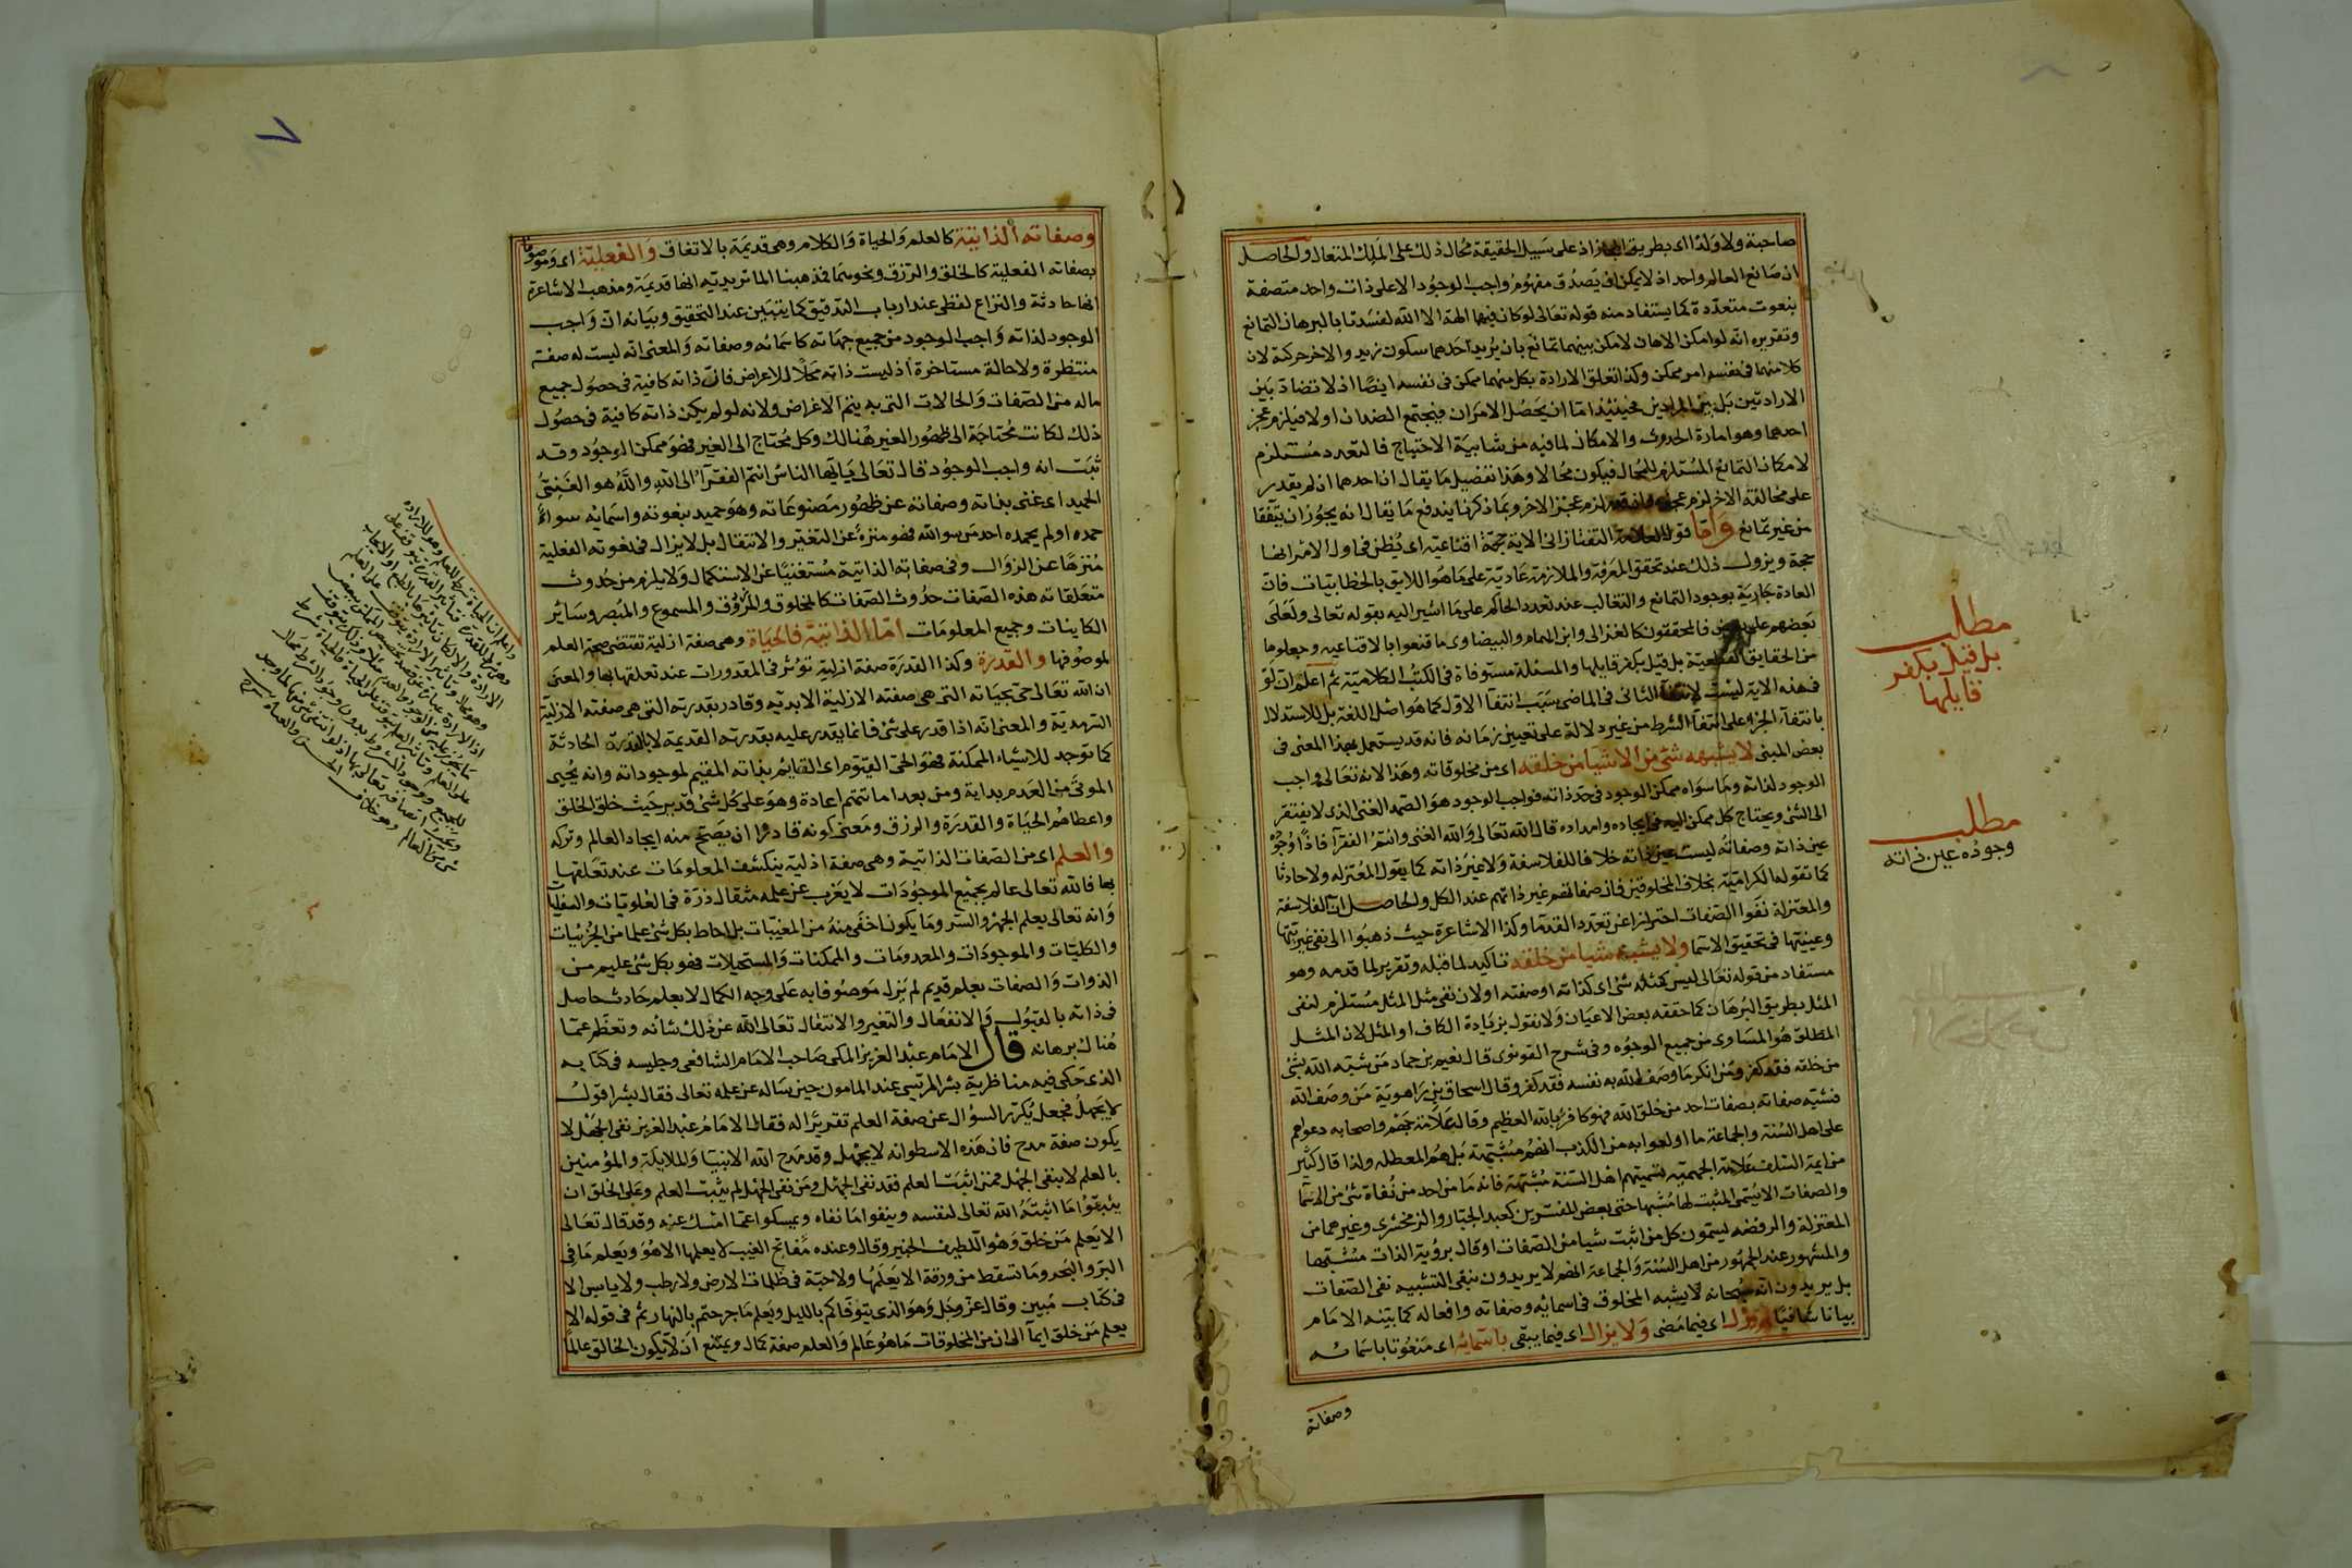 صاحبة ولا ولدا اى بطريق المجاز اذ على سبيل الحقيقة محال ذلك على الملك المتعال والحاصل
ان صانع العالم واحد اذ لا يمكن ان يصدق مفهوم واجب الوجود الا على ذات واحد متصفة
بنعوت متعددة كما يستفاد منه قوله تعالى لو كان فيهما الهة الا الله لفسدتا بالبرهان التمانع
وتقريره انه لو امكن الاهان لامكن بينهما تمانع بان يريد احدهما سكون زيد والاخر حركة لان
كلا منهما فى نفسه امر ممكن وكذا تعلق الارادة بكل منهما ممكن فى نفسه ايضا اذ لا تضاد بين
الارادتين بل بين المرادين فحينئذ اما ان يحصل الامران فيجتمع الضدان اولا فيلزم عجز
احدهما وهو امارة الحدوث والامكان لما فيه من شايبة الاحتياج فالتعدد مستلزم
لامكان التمانع المستلزم للمحال فيكون محالا وهذا تفصيل ما يقال ان احدهما ان لم يقدر
على مخالفة الاخر لزم عجزه وان قدر لزم عجز الاخر وبما ذكرنا يندفع ما يقال انه يجوز ان يتفقا
من غير تمانع واما قول العلامة التفتازانى الاية حجة اقناعية اى يظن فى اول الامر انها
حجة ويزول ذلك عند تحقق المعرفة والملازمة عادية على ما هو اللايق بالخطابيات فان
العادة جارية بوجود التمانع والتغالب عند تعدد الحاكم على ما اشير اليه بقوله تعالى ولعلى
بعضهم على بعض فالمحققون كالغزالى وابن الهمام والبيضاوى ما قنعوا بالاقناعيه وجعلوها
من الحقايق القطعية بل قيل بكفر قايلها والمسئلة مستوفاة فى الكتب الكلامية ثم اعلم ان لو
فى هذه الاية ليست لانتفاء الثانى فى الماضى بسبب انتفاء الاول كما هو اصل اللغة بل للاستدلال
بانتفاء الجزء على انتفاء الشرط من غير دلالة على تعيين زمانه فانه قد يستعمل بهذا المعنى فى
بعض المبنى لا يشبهه شئ من الاشيا من خلقه اى من مخلوقاته وهذا لانه تعالى واجب
الوجود لذاته وما سواه ممكن الوجود فى حد ذاته فواجب الوجود هو الصمد الغنى الذى لا يفتقر
الى الشئ ويحتاج كل ممكن اليه فى ايجاده وامداده قال الله تعالى والله الغنى وانتم الفقرآ فاذا وجوده
عين ذاته وصفاته ليست عين ذاته خلافا للفلاسفة ولا غير ذاته كما يقول المعتزله ولا حادثا
كما تقوله الكرامية بخلاف المخلوقين فان صفاتهم غير ذاتهم عند الكل والحاصل ان الفلاسفة
والمعتزلة نفوا الصفات احترازا عن تعدد القدما وكذا الاشاعرة حيث ذهبوا الى نفى غيريتها
وعينيتها فى تحقيق الاسما ولا يشبه شيا من خلقه تاكيد لما قبله وتقرير لما قدمه وهو
مستفاد من قوله تعالى ليس كمثله شئ اى كذاته او صفته اولان نفى مثل المثل مستلزم لنفى
المثل بطريق البرهان كما حققه بعض الاعيان ولا نقول بزيادة الكاف او المثل لان المثل
المطلق هو المساوى من جميع الوجوه وفى شرح القونوى قال نعيم بن حماد من شبه الله بشئ
من خلقه فقد كفر ومن انكر ما وصف الله به نفسه فقد كفر وقال اسحاق بن راهوية من وصف الله
فشبه صفاته بصفات احد من خلق الله فهو كافر بالله العظيم وقال علامة جهم واصحابه دعواهم
على اهل السنة والجماعة ما اولعوا به من الكذب انهم مشبهة بل هم المعطله ولذا قال كثير
من ايمة السلف علامة الجهمية تسميتهم اهل السنة مشبهة فانه ما من احد من نفاة شئ من الاسما
والصفات الا يسمى المثبت لها مشبها حتى بعض المفسرين كعبد الجبار والزمخشرى وغيرهما من
المعتزلة والرفضه يسمون كل من اثبت شيا من الصفات او قال برؤية الذات مشبها
والمشهور عند الجمهور من اهل السنة والجماعة انهم لا يريدون بنفى التشبيه نفى الصفات
بل يريدون انه سبحانه لا يشبه المخلوق فى اسمائه وصفاته وافعاله كما بينه الامام
بيانا شافيا لم يزل اى فيما مضى ولا يزال اى فيما يبقى باسمائه اى منعوتا باسمائه
وصفاته
مطلب
بل قيل بكفر
قايلها
مطلب
وجوده عين ذاته
٧
وصفاته الذاتية كالعلم والحياة والكلام وهى قديمة بالاتفاق والفعلية اى وموصوفا
بصفاته الفعلية كالخلق والرزق ونحوهما فمذهبنا الماتريديه انها قديمة ومذهب الاشاعرة
انها حادثة والنزاع لفظى عند ارباب التدقيق كما يتبين عند التحقيق وبيانه ان واجب
الوجود لذاته واجب الوجود من جميع جهاته كاسمائه وصفاته والمعنى انه ليست له صفة
منتظرة ولا حالة مستاخرة اذ ليست ذاته محلا للاعراض فان ذاته كافية فى حصول جميع
ماله من الصفات والحالات التى به يتم الاغراض ولانه لو لم يكن ذاته كافية فى حصول
ذلك لكانت محتاجة الى ظهور الغير هنالك وكل محتاج الى الغير فهو ممكن الوجود وقد
ثبت انه واجب الوجود قال تعالى يايها الناس انتم الفقرآء الى الله والله هو الغنى
الحميد اى غنى بذاته وصفاته عن ظهور مصنوعاته وهو حميد بنعوته واسمايه سواء
حمده او لم يحمده احد من سوالله فهو منزه عن التغير والانتقال بل لا يزال فى نعوته الفعلية
منزها عن الزوال وفى صفاته الذاتية مستغنيا عن الاستكمال ولا يلزم من حدوث
متعلقات هذه الصفات حدوث الصفات كالمخلوق والمرزوق والمسموع والمبصر وساير
الكاينات وجميع المعلومات اما الذاتية فالحياة وهى صفة ازلية تقتضى صحة العلم
لموصوفها والقدرة وكذا القدرة صفة ازلية تؤثر فى المقدورات عند تعلقها بها والمعنى
ان الله تعالى حى بحياته التى هى صفته الازلية الابديه وقادر بقدرته التى هى صفته الازلية
السرمدية والمعنى انه اذا قدر على شئ فانما يقدر عليه بقدرته القديمة لا بالقدرة الحادثة
كما توجد للاشياء الممكنة فهو الحى القيوم اى القايم بذاته المقيم لموجوداته وانه يحيى
الموتى من العدم بداية ومن بعد اماتتهم اعادة وهو على كل شئ قدير حيث خلق الخلق
واعطاهم الحياة والقدرة والرزق ومعنى كونه قادرا ان يصح منه ايجاد العالم وتركه
والعلم اى من الصفات الذاتية وهى صفة ازلية ينكشف المعلومات عند تعلقها
بها فالله تعالى عالم بجميع الموجودات لا يعزب عن علمه مثقال ذرة فى العلويات والسفليات
وانه تعالى يعلم الجهر والسر وما يكون اخفى منه من المغيبات بل احاط بكل شئ علما من الجزئيات
والكليات والموجودات والمعدومات والممكنات والمستحيلات فهو بكل شئ عليم من
الذوات والصفات بعلم قديم لم يزل موصوفا به على وجه الكمال لا بعلم حادث حاصل
فى ذاته بالقبول والانفعال والتغير والانتقال تعالى الله عن ذلك شانه وتعظم عما
هنالك برهانه قال الامام عبد العزيز المكى صاحب الامام الشافعى وجليسه فى كتابه
الذى حكى فيه مناظرية بشر المريسى عند المامون حين ساله عن علمه تعالى فقال بشر اقول
لا يجهل فجعل يكرر السؤال عن صفة العلم تقريرا له فقال الامام عبد العزيز نفى الجهل لا
يكون صفة مدح فان هذه الاسطوانه لا يجهل وقد مدح الله الانبيا والملايكة والمؤمنين
بالعلم لا بنفى الجهل فمن اثبت العلم فقد نفى الجهل ومن نفى الجهل لم يثبت العلم وعلى الخلق ان
يثبتوا ما اثبته الله تعالى لنفسه وينفوا ما نفاه ويمسكوا عما امسك عنه وقد قال تعالى
الا يعلم من خلق وهو اللطيف الخبير وقال وعنده مفاتح الغيب لا يعلمها الا هو ويعلم ما فى
البر والبحر وما تسقط من ورقة الا يعلمها ولا حبة فى ظلمات الارض ولا رطب ولا يابس الا
فى كتاب مبين وقال عز وجل وهو الذى يتوفاكم بالليل ويعلم ما جرحتم بالنهار ثم فى قوله الا
يعلم من خلق ايمآ الى ان من المخلوقات ما هو عالم والعلم صفة كمال ويمتنع ان لا يكون الخالق عالما